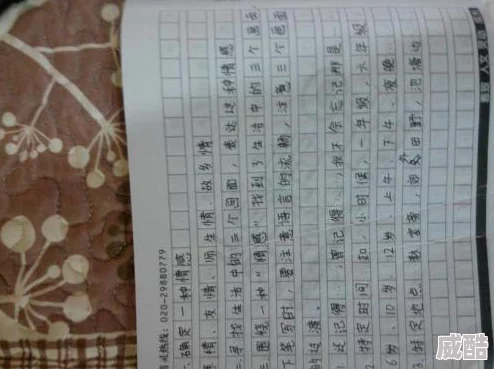 热线：020-29880779
确定一种情感
情、友情、师生情、故乡情
二.寻找生活中的三个画面，表达这种情感
三.围绕一种“情感”找到了生活中的三个画面，
下笔写时，要注意语言的流畅，注意三个画面
的过渡。
1.还记得……，曾记得……，我不会忘记那是
2.特定时间 如：小时候，一年级，六年级
6岁、10岁、12岁、上午、下午、夜晚
3.特定地点 教室旁，郊外田野，池塘边
威酷